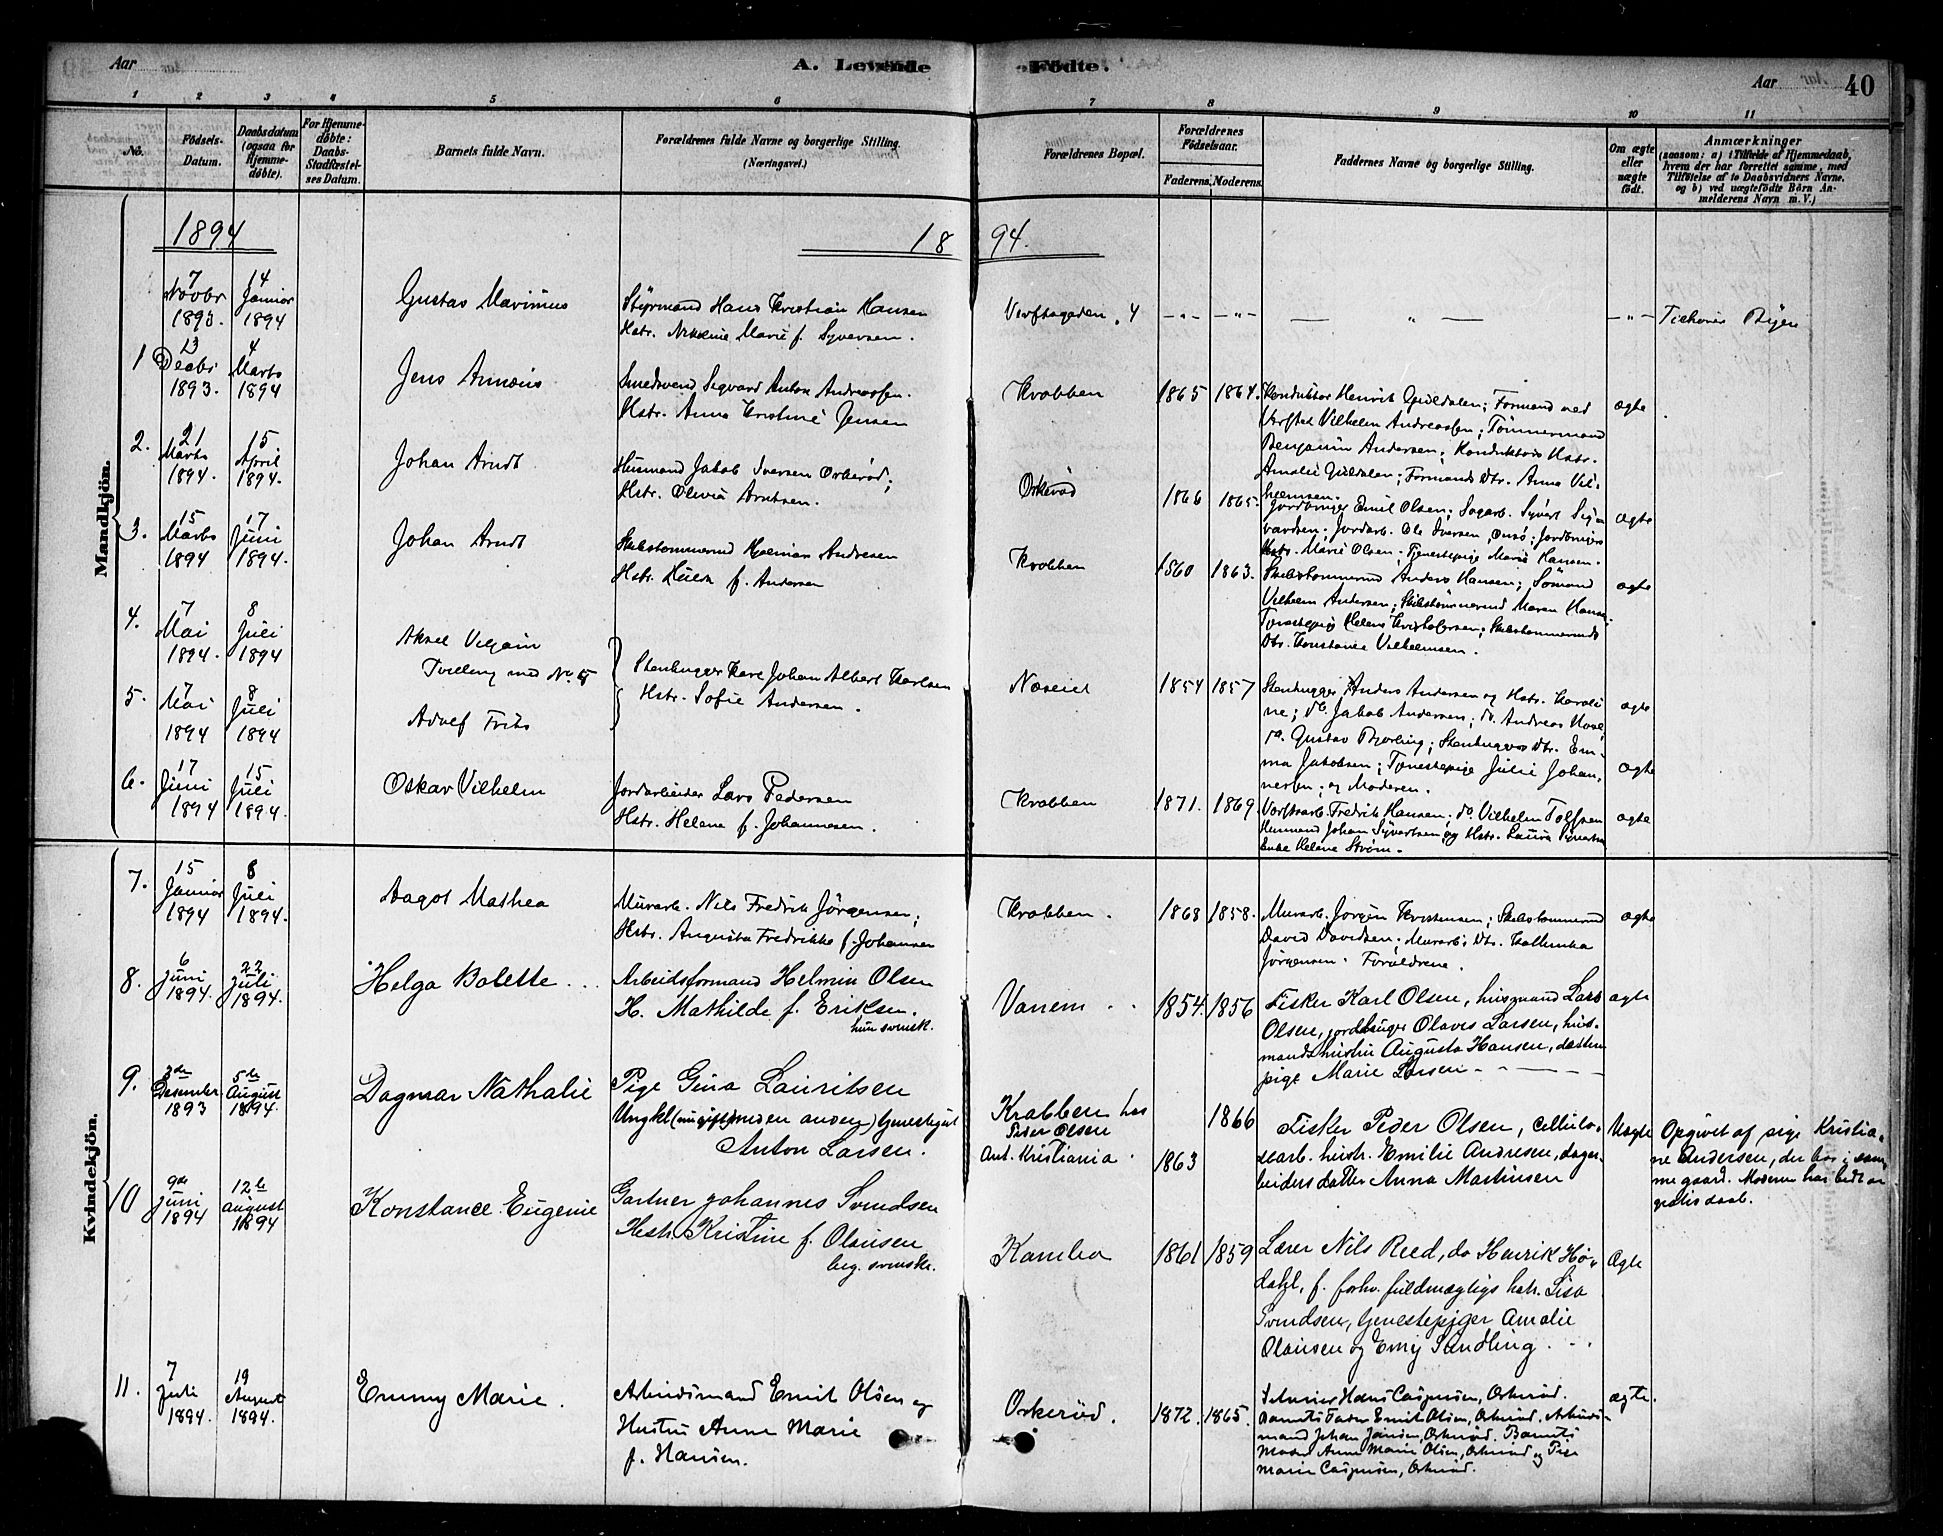 Aar
A. Levende Födte.
Aar 40
1 2 3 4 5 6 7 8 9 10 11
No.
Födsels-Datum.
Daabsdatum (ogsaa for Hjemme-døbte).
For Hjemme-døbte: Daabs-Stadfæstel-ses Datum.
Barnets fulde Navn.
Forældrenes fulde Navne og borgerlige Stilling. (Næringsvei.)
Forældrenes Bopæl.
Forældrenes Fødselsaar.
Faderens. Moderens.
Faddernes Navne og borgerlige Stilling.
Om ægte eller uægte født.
Anmærkninger
(saasom: a) i Tilfælde af Hjemmedaab, hvem der har forrettet samme, med Tilføielse af to Daabsvidners Navne, og b) ved uægtefødte Börn An-melderens Navn m. V.)
1894
18 94.
Mandkjön.
7 Novbr 1893.
14 Januar 1894
Gustav Marinius
Styrmand Hans Kristian Hansen
Hstr. Nikoline Marie f. Syversen.
Verftsgaden 4
Tilhører Byen
1
13 Decbr 1893.
4 Marts 1894
Jens Annæus
Smedsvend Sigvard Anton Andreassen.
Hstr. Anna Kristine Jensen
Krabben
1865 1864.
Konduktør Henrik Guldalen; Formand ved
Verftet Vilhelm Andreassen; Tømmermand
Benjamin Andersen; Konduktørs Hstr.
Amalie Guldalen; Formands Dtr. Anna Vil-
helmsen.
ægte
2.
21 Marts 1894.
15 April 1894.
Johan Arndt
Husmand Jakob Iversen Orkerød;
Hstr. Olivia Arntsen.
Orkerød
1866 1865.
Jordbruger Emil Olsen; Sagarb. Syvert Sig-
vardsen; Jordarb. Ole Iversen, Onsø; Jordbrugers
Hstr. Marie Olsen; Tjenestepige Marie Hansen.
ægte
3.
15 Marts 1894
17 Juni 1894.
Johan Arndt
Skibstømmermd Hjalmar Andresen
Hstr. Hulda f. Andersen
Krabben
1860 1863.
Skibstømmermd Anders Hansen; Sømand
Vilhelm Andersen; Skibstømmermd Maren Hansen
Tjenestepige Helene Kristofersen; Skibstømmermds
Dtr. Konstanse Vilhelmsen.
ægte
4.
7 Mai 1894.
8 Juli 1894
Aksel Viljam
Tvilling med No. 5
Stenhugger Karl Johan Albert Karlsen
Hstr. Sofie Andersen.
Næseiet
1854 1857
Stenhugger Anders Andersen og Hstr. Karoli
ne; do. Jakob Andersen; do. Andreas
do. Gustav Bjørling; Stenhuggers Dtr. Em-
ma Jakobsen; Tjenestepige Julie Johan-
nesen; og Moderen.
ægte
5.
7 Mai 1894
8 Juli 1894
Adolf Frits
ægte
6.
17 Juni 1894
15 Juli 1894.
Oskar Vilhelm
Jordarbeider Lars Pedersen
Hstr. Helene f. Johannesen.
Krabben
1871. 1869.
Verftsarb. Fredrik Hansen; do. Vilhelm Tolfsen
Husmand Johan Syvertsen og Hstr. Laura Syvertsen
Enke Helene Strøm.
ægte
Kvindekjön.
7.
15 Januar 1894
8 Juli 1894.
Aagot Mathea
Murarb. Nils Fredrik Jörgensen;
Hstr. Augusta Fredrikke f. Johansen
Krabben.
1868 1858.
Murarb. Jørgen Kristensen; Skibstømmermd
David Davidsen; Murarb. Dtr. Kathinka
Jörgensen. Forældrene.
ægte
8.
6 Juni 1894.
22 Juli 1894.
Helga Bolette
Arbeidsformand Helmin Olsen
H. Mathilde f. Eriksen.
hun svensk.
Vanem
1854. 1856
Fisker Karl Olsen, husmand Lars
Olsen, jordbruger Olaves Larsen, hus-
mands hustru Augusta Hansen,
pige Marie Larsen
ægte
9.
3die Desember 1893
5te August 1894.
Dagmar Nathalie
Pige Gina Lauritsen
Ungkl (ungift med en anden) tjenestegut
Anton Larsen.
Krabben hos
Peder Olsen
Ant. Kristiania
1863 1866
Fisker Peder Olsen, cellulo-
searb. hustr. Emilie Andresen, dagar-
beiders datter Anna Martinsen
Uægte
Opgivet af pige Kristia-
ne Andersen, der bor i sam-
me gaard. Moderen har bedt om
gratis daab.
10
9de Juni 1894
12te august 1894
Konstance Eugenie
Gartner Johannes Svendsen
Hustr. Kristine f. Olausen
beg. svenske.
Kambo
1861 1859
Lærer Nils Reed, do Henrik Hø-
dahl, f. forhv. fuldmægtigs hstr. Lisa
Svendsen, tjenestepiger Amalie
Olausen og Emy Sundling.
Ægte
11.
7 Juli 1894.
19 August 1894.
Emmy Marie.
Arbeidsmand Emil Olsen og
Hustru Anne Marie
f. Hansen.
Orkerød.
1872. 1865.
Hans Caspersen, Orkerød.
Barnets Fader Emil Olsen, Orkerød. Arbeids-
mand Johan Jansen, Orkerød. Barnets
Moder Anne Marie Olsen, Orkerød og Pige
Marie Caspersen, Orkerød.
ægte.